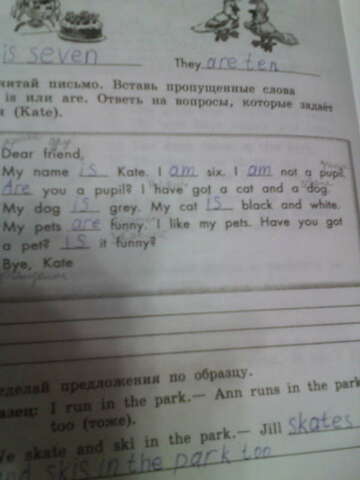 is seven
They are ten
читай письмо. Вставь пропущенные слова
is или are. Ответь на вопросы, которые задаёт
(Kate).
Dear friend,
My name is Kate. I am six. I am not a pupil.
Are you a pupil? I have got a cat and a dog.
My dog is grey. My cat is black and white.
My pets are funny. I like my pets. Have you got
a pet? is it funny?
Bye, Kate
делай предложения по образцу.
I run in the park.— Ann runs in the park
too (тоже).
We skate and ski in the park.— Jill skates
and skis in the park too